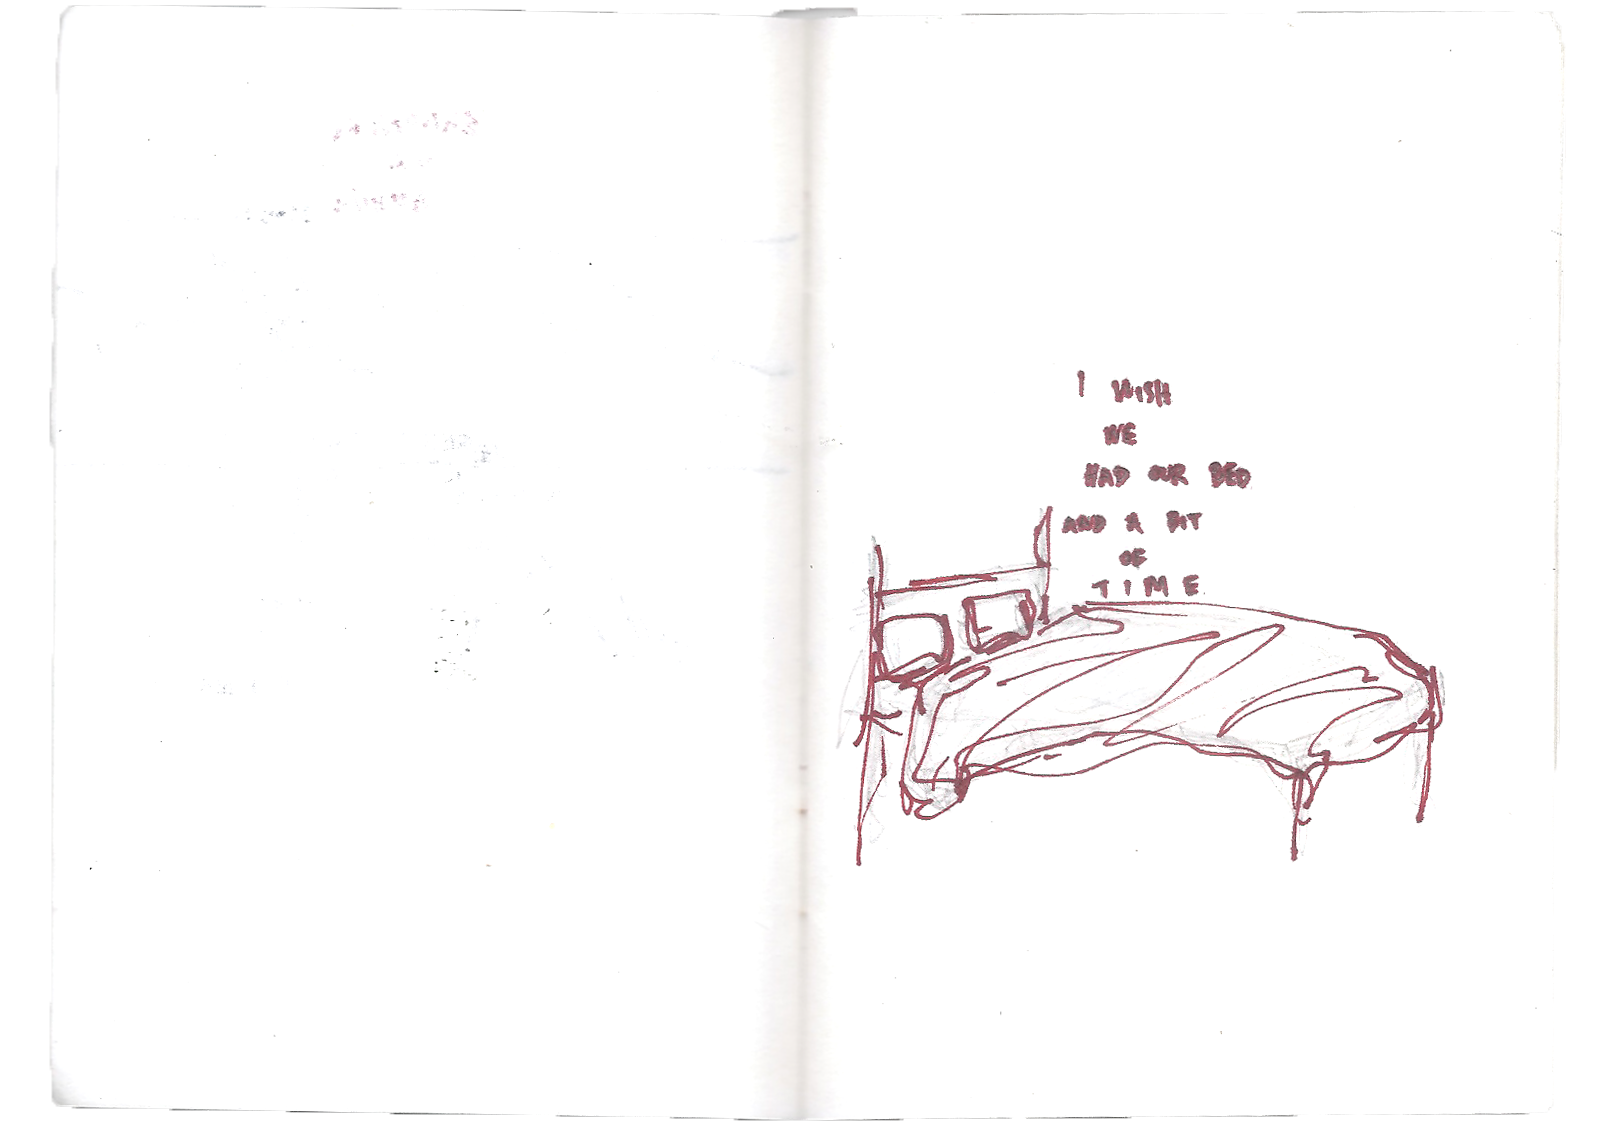 I WISH
WE
HAD OUR BED
AND A BIT
OF
TIME